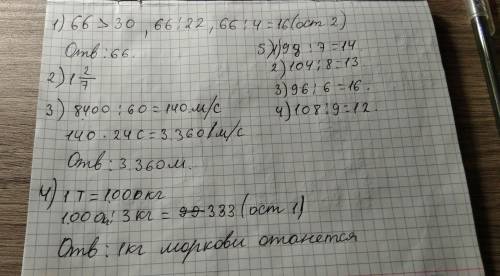 1) 66 > 30, 66 : 22, 66 : 4 = 16 (ост 2)
Отв : 66.
2) 1 2/7
3) 8400 : 60 = 140 м/с
140 · 24 с = 3.360 м/с
Отв : 3.360 м.
4) 1 т = 1.000 кг
1.000 : 3 кг = 383 (ост 1)
Отв : 1 кг моркови останется
5) 1) 98 : 7 = 14
2) 104 : 8 = 13.
3) 96 : 6 = 16.
4) 108 : 9 = 12.